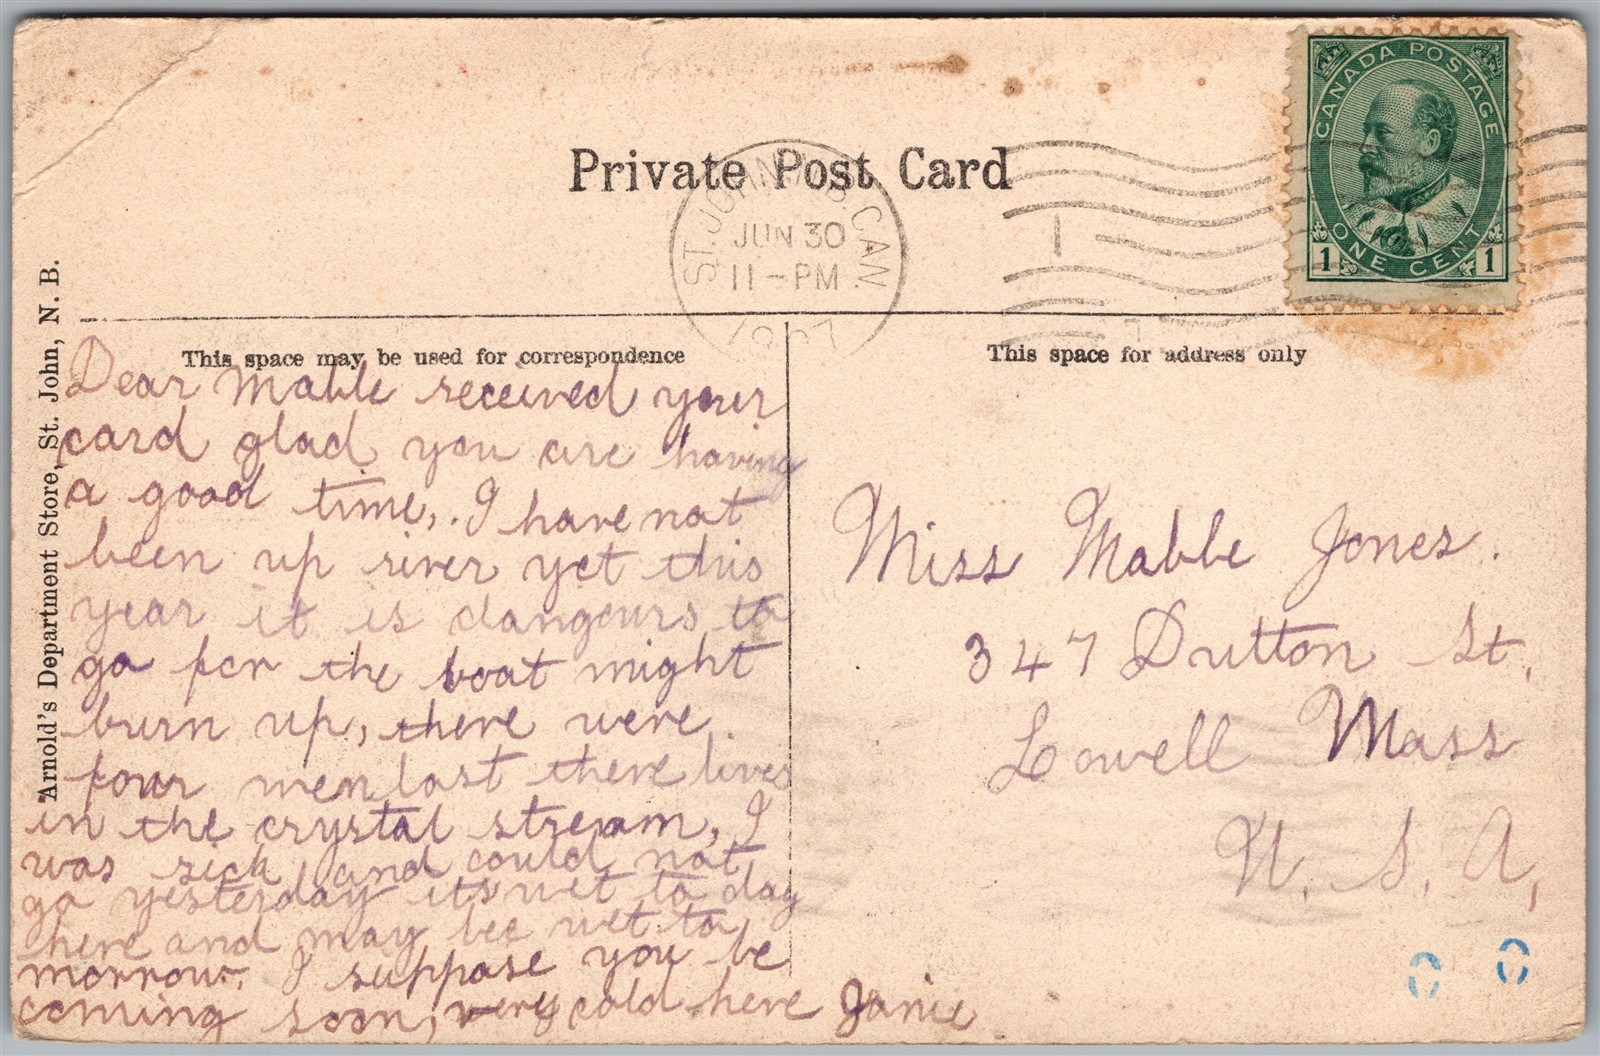 Private Post Card
CANADA POSTAGE
ONE CENT
1 1
ST. JOHN, N.B. CAN.
JUN 30
11-PM
1907
1
This space may be used for correspondence
This space for address only
Arnold's Department Store, St. John, N. B.
Dear Mable received your
card glad you are having
a good time,. I have not
been up river yet this
year it is dangours to
go for the boat might
burn up, there were
four men lost there lives
in the crystal stream, I
was sick and could not
go yesterday its wet to day
here and may bee wet to
morrow. I suppose you be
coming soon, very cold here Janie
Miss Mable Jones.
347 Dutton St,
Lowell Mass
U. S. A,